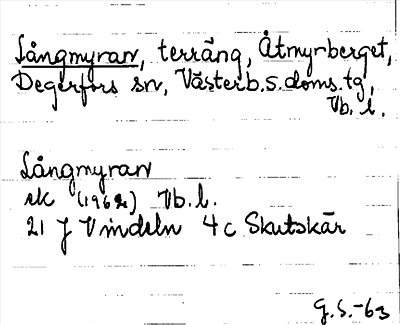 Långmyran, terräng, Åtmyrberget,
Degerfors sn, Västerb.s.doms.tg,
Vb. l.
Långmyran
ek (1962) Vb. l.
21 J Vindeln 4 c Skutskär
G.S.-63